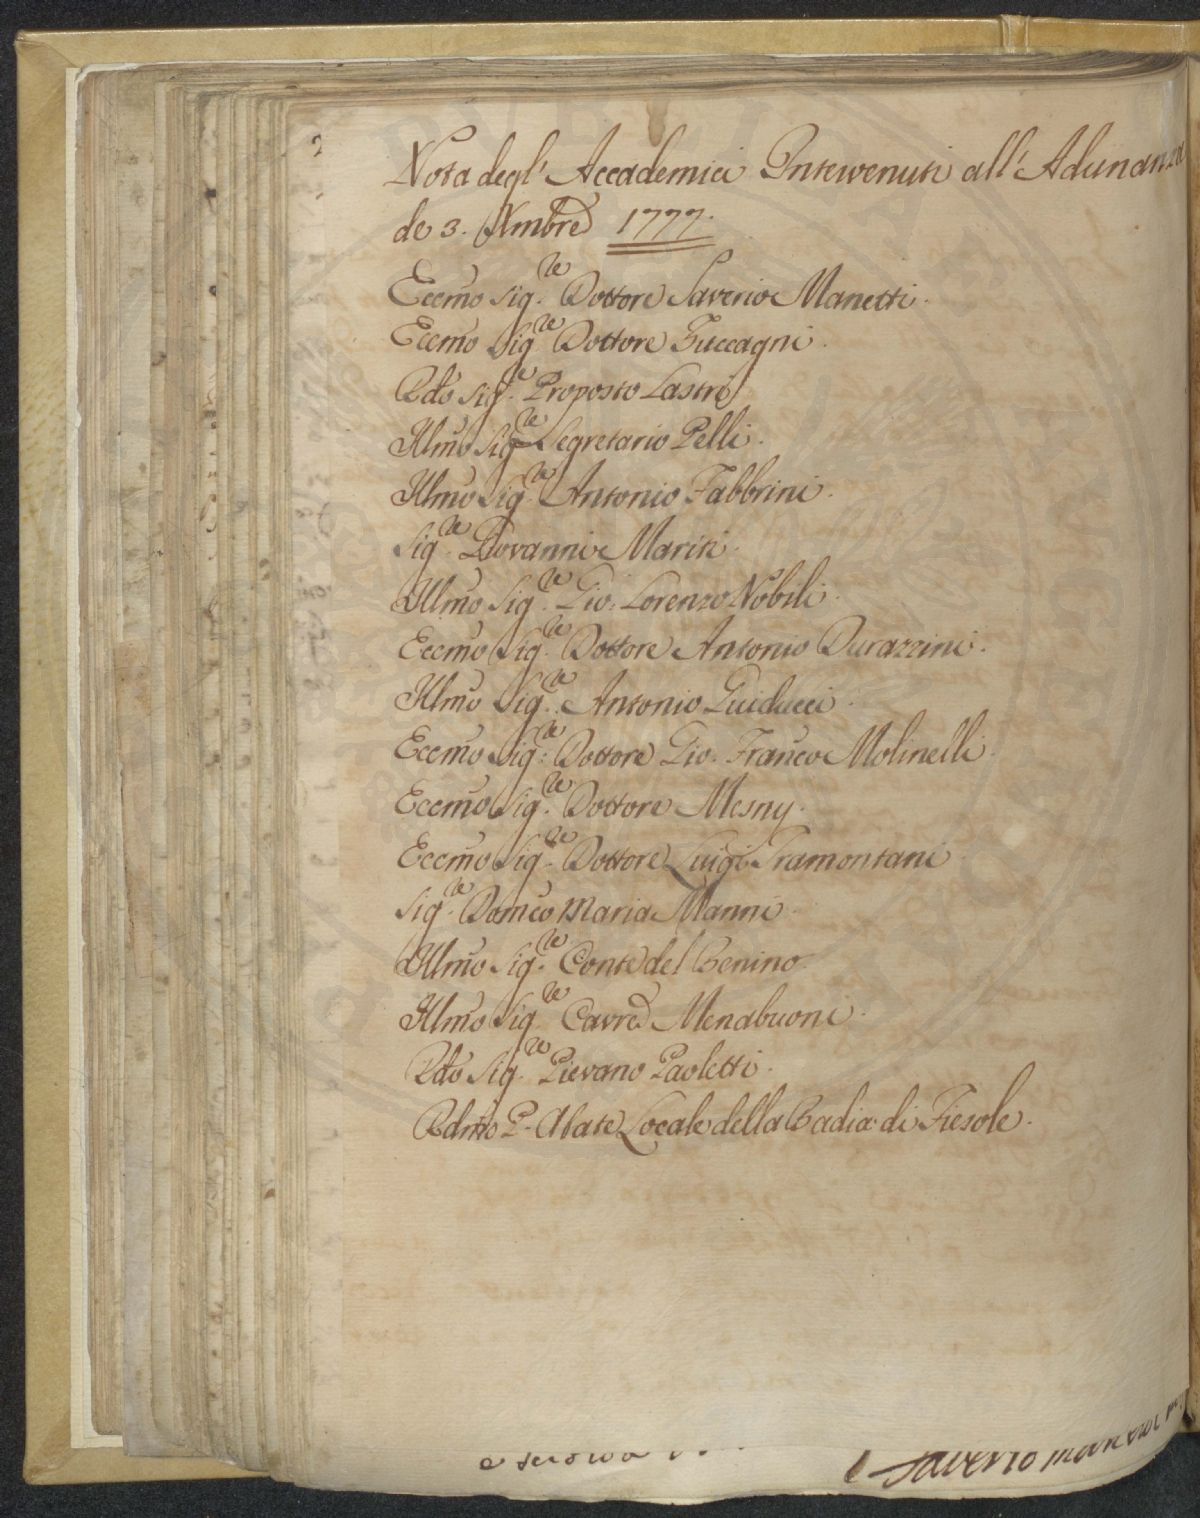 Nota degl' Accademici Intervenuti all' Adunanza
de 3. Xmbre 1777.
Eccmo Sig.re Dottore Saverio Manetti.
Eccmo Sig.re Dottore Zuccagni.
Rdo Sig.re Proposto Lastri
Illmo Sig.re Segretario Pelli.
Illmo Sig.re Antonio Fabbrini.
Sig.re Giovanni Mariti.
Illmo Sig.re Gio: Lorenzo Nobili.
Eccmo Sig.re Dottore Antonio Durazzini.
Illmo Sig.re Antonio Guiducci.
Eccmo Sig.re Dottore Gio. Franco Molinelli.
Eccmo Sig.re Dottore Mesny.
Eccmo Sig.re Dottore Luigi Tramontani
Sig.re Domco Maria Manni.
Illmo Sig.re Conte del Benino.
Illmo Sig.re Cavre Menabuoni.
Rdo Sig.re Pievano Paoletti.
Rdmo P. Abate Locale della Badia di Fiesole.
Saverio Manetti